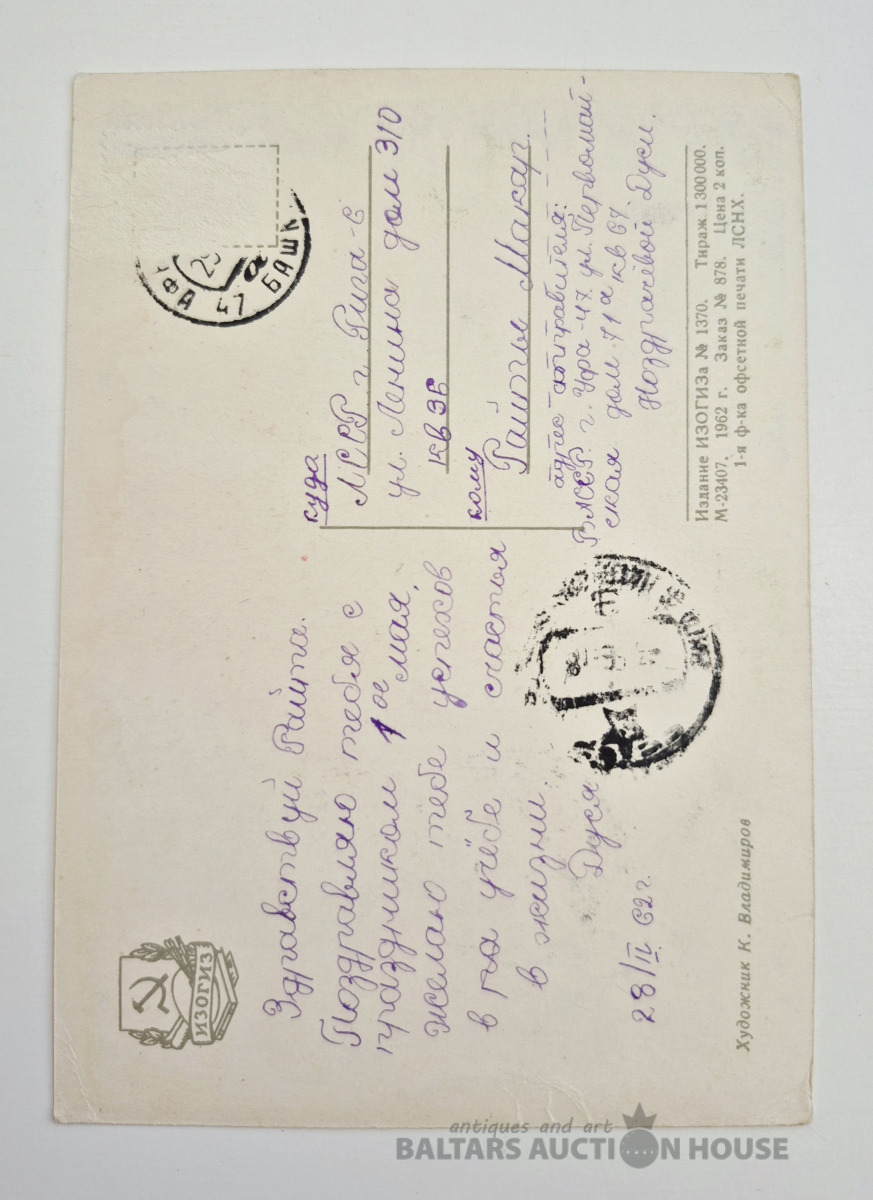 ИЗОГИЗ
Здравствуй Райта.
Поздравляю тебя с
праздником 1ое мая.
желаю тебе успехов
в па учёбе и счастья
в жизни.
Дуся
28/IV 62 г.
Художник К. Владимиров
УФА 47 БАШК
куда
ЛССР г. Рига-6
ул. Ленина дом 310
кв 36
кому
Райте Макар.
адрес отправителя:
БАССР. г. Уфа-47 ул. Первомай-
ская дом 71а кв 67.
Ноздрачёвой Дуси.
Издание ИЗОГИЗа № 1370. Тираж 1 300 000.
М-23407. 1962 г. Заказ № 878. Цена 2 коп.
1-я ф-ка офсетной печати ЛСНХ.
antiques and art
BALTARS AUCTION HOUSE